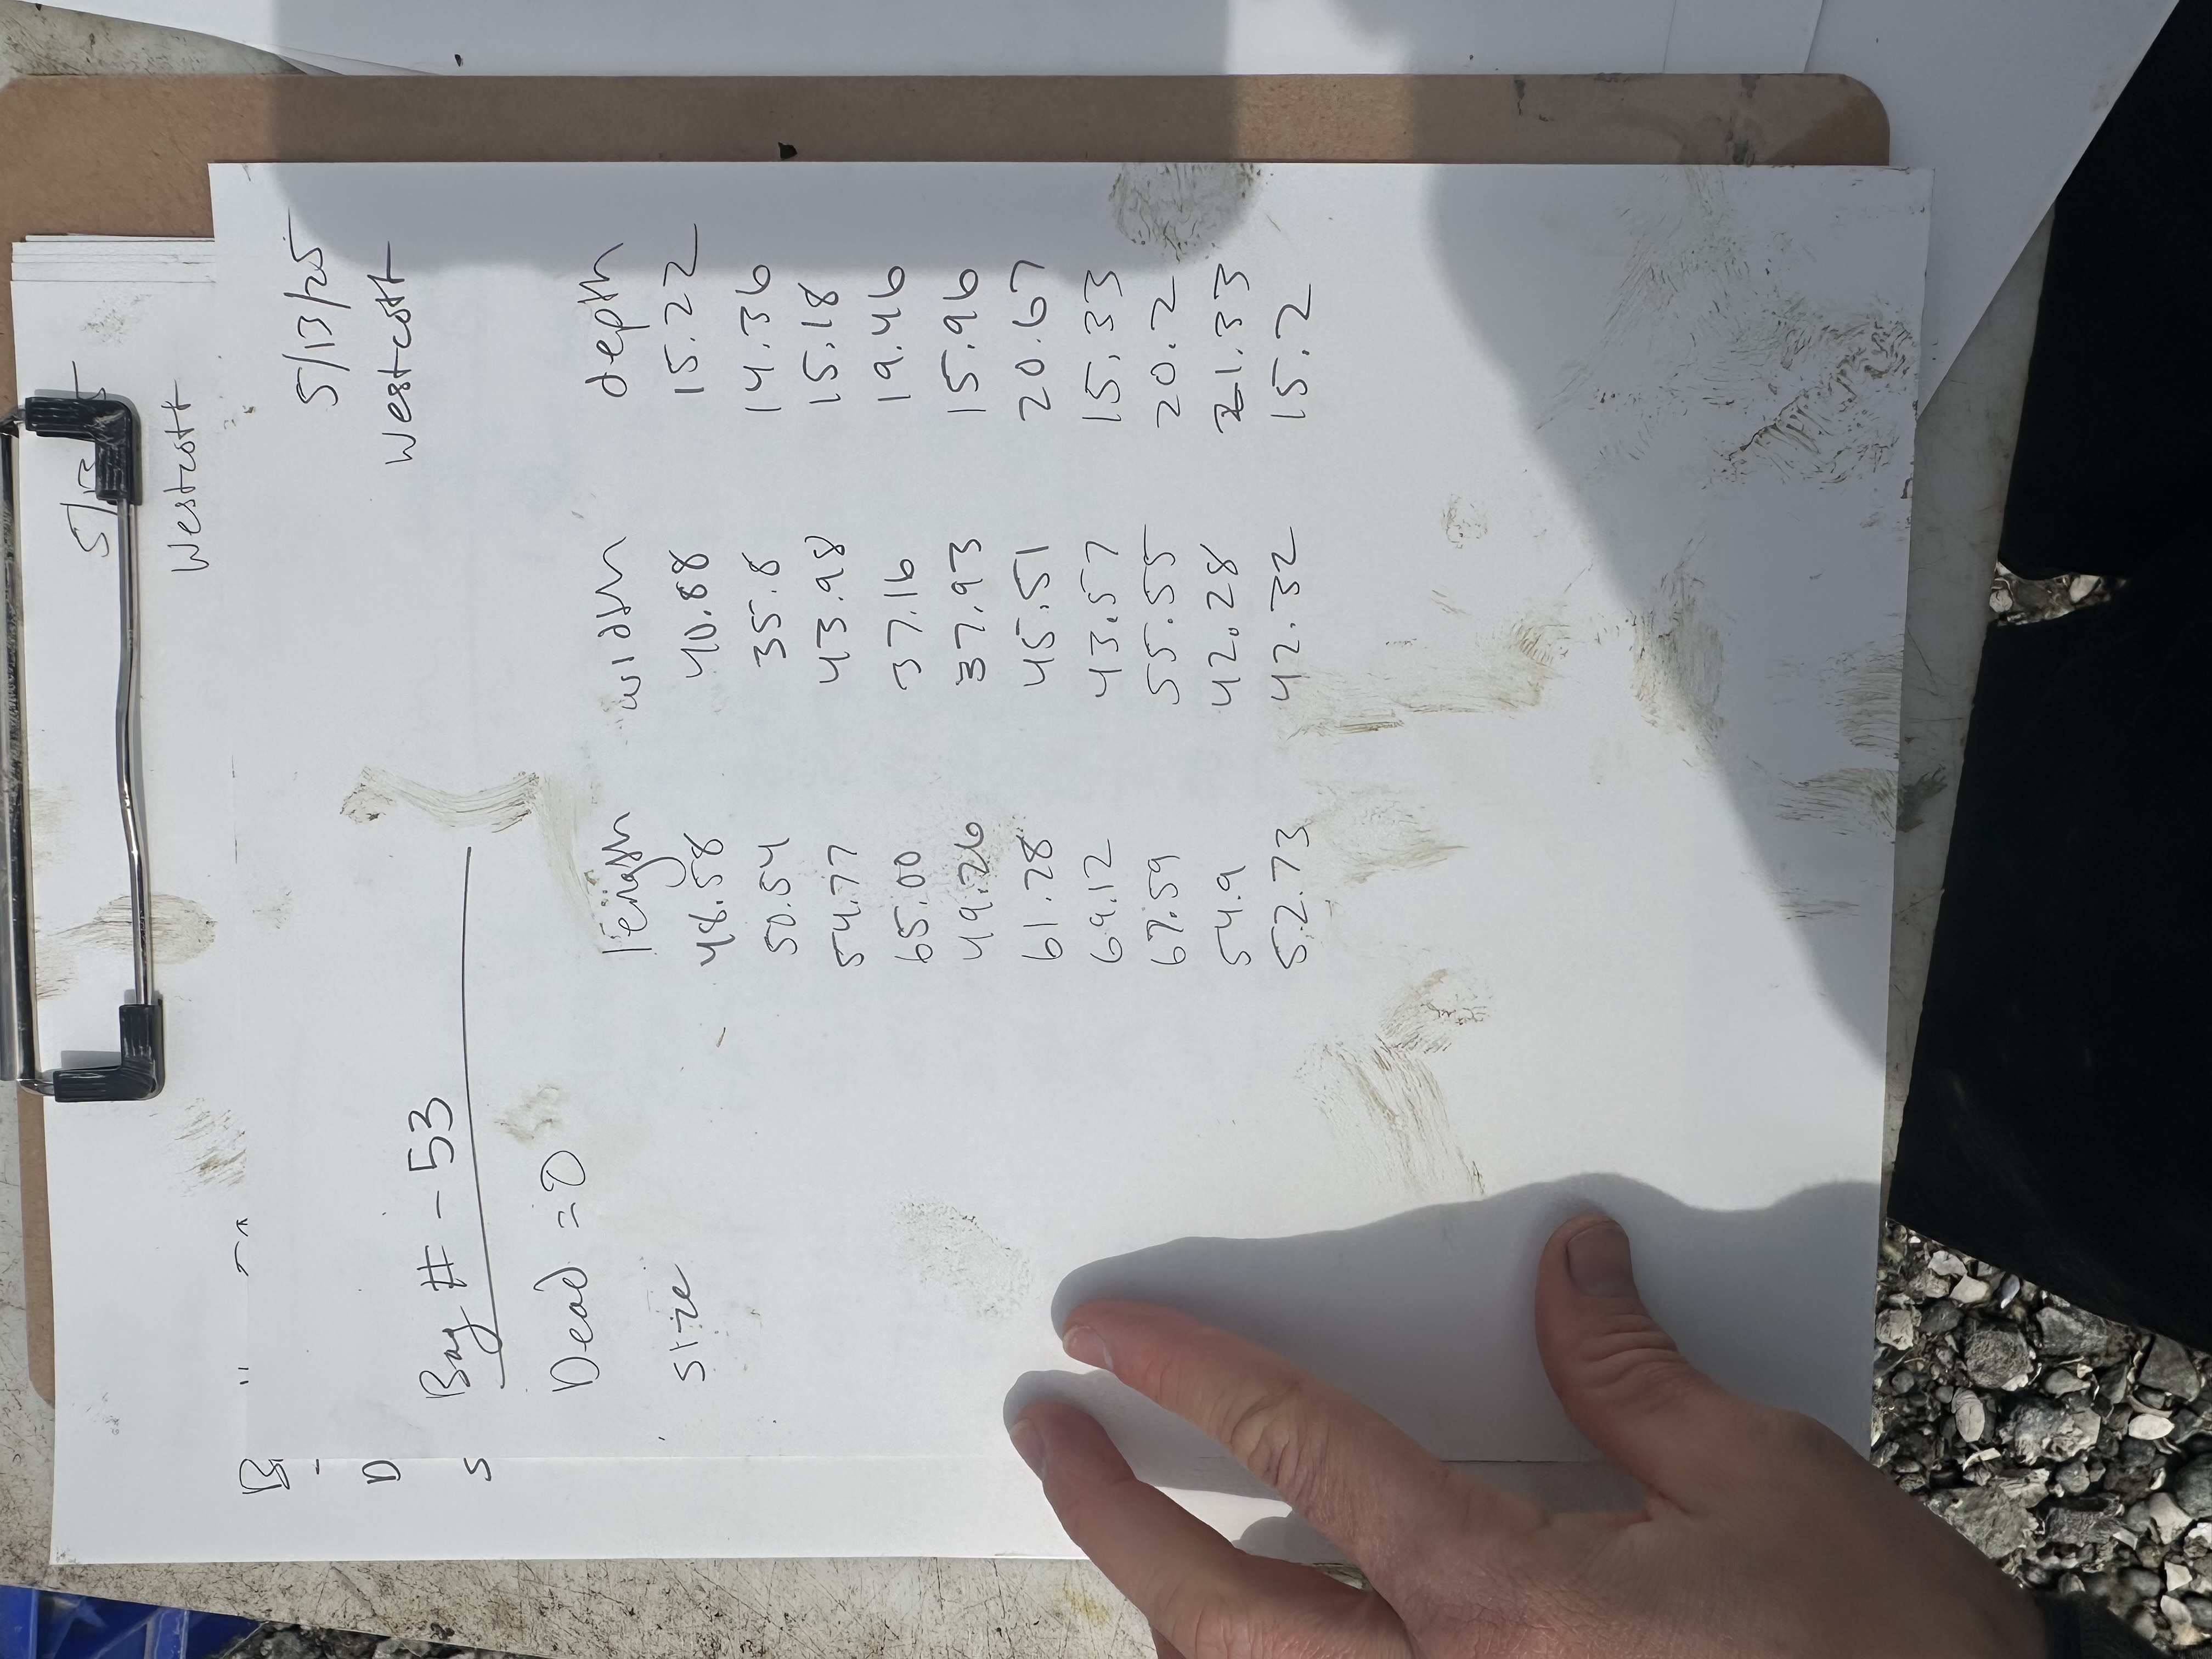 Westcott
5/13/25
Westcott
Bag # - 53
Dead = 0
length width depth
size
48.58 40.88 15.22
50.54 35.8 14.36
54.77 43.98 15.18
65.00 37.16 19.46
49.26 37.93 15.96
61.28 45.51 20.67
69.12 43.57 15.33
67.59 55.55 20.2
54.9 42.28 21.33
52.73 42.32 15.2